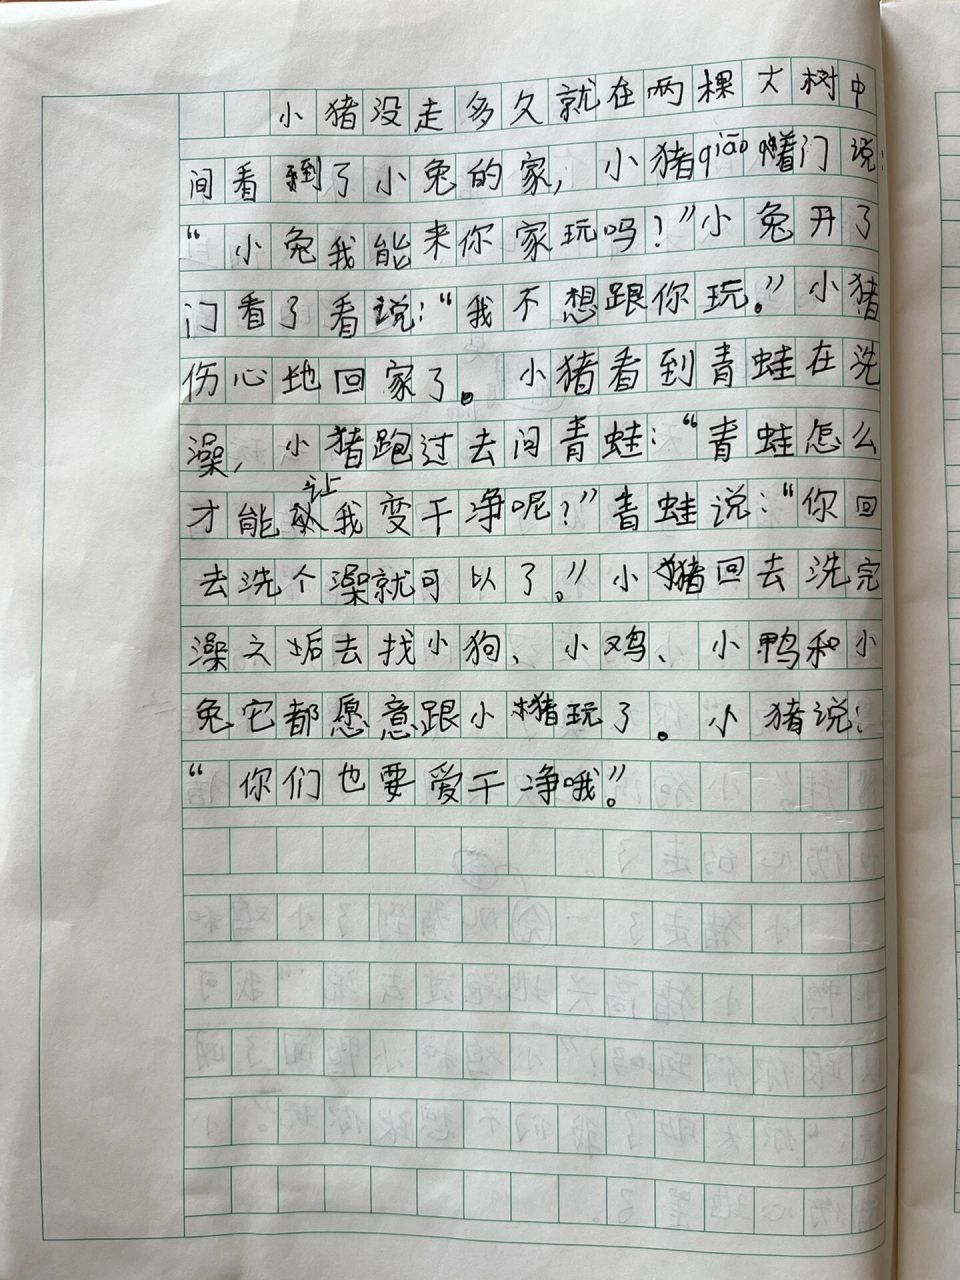 小猪没走多久就在两棵大树中
间看到了小兔的家，小猪qiāo着门说：
“小兔我能来你家玩吗？”小兔开了
门看了看说：“我不想跟你玩。”小猪
伤心地回家了。小猪看到青蛙在洗
澡，小猪跑过去问青蛙：“青蛙怎么
才能让我变干净呢？”青蛙说：“你回
去洗个澡就可以了。”小猪回去洗完
澡之后去找小狗、小鸡、小鸭和小
兔它都愿意跟小猪玩了。小猪说：
“你们也要爱干净哦。”